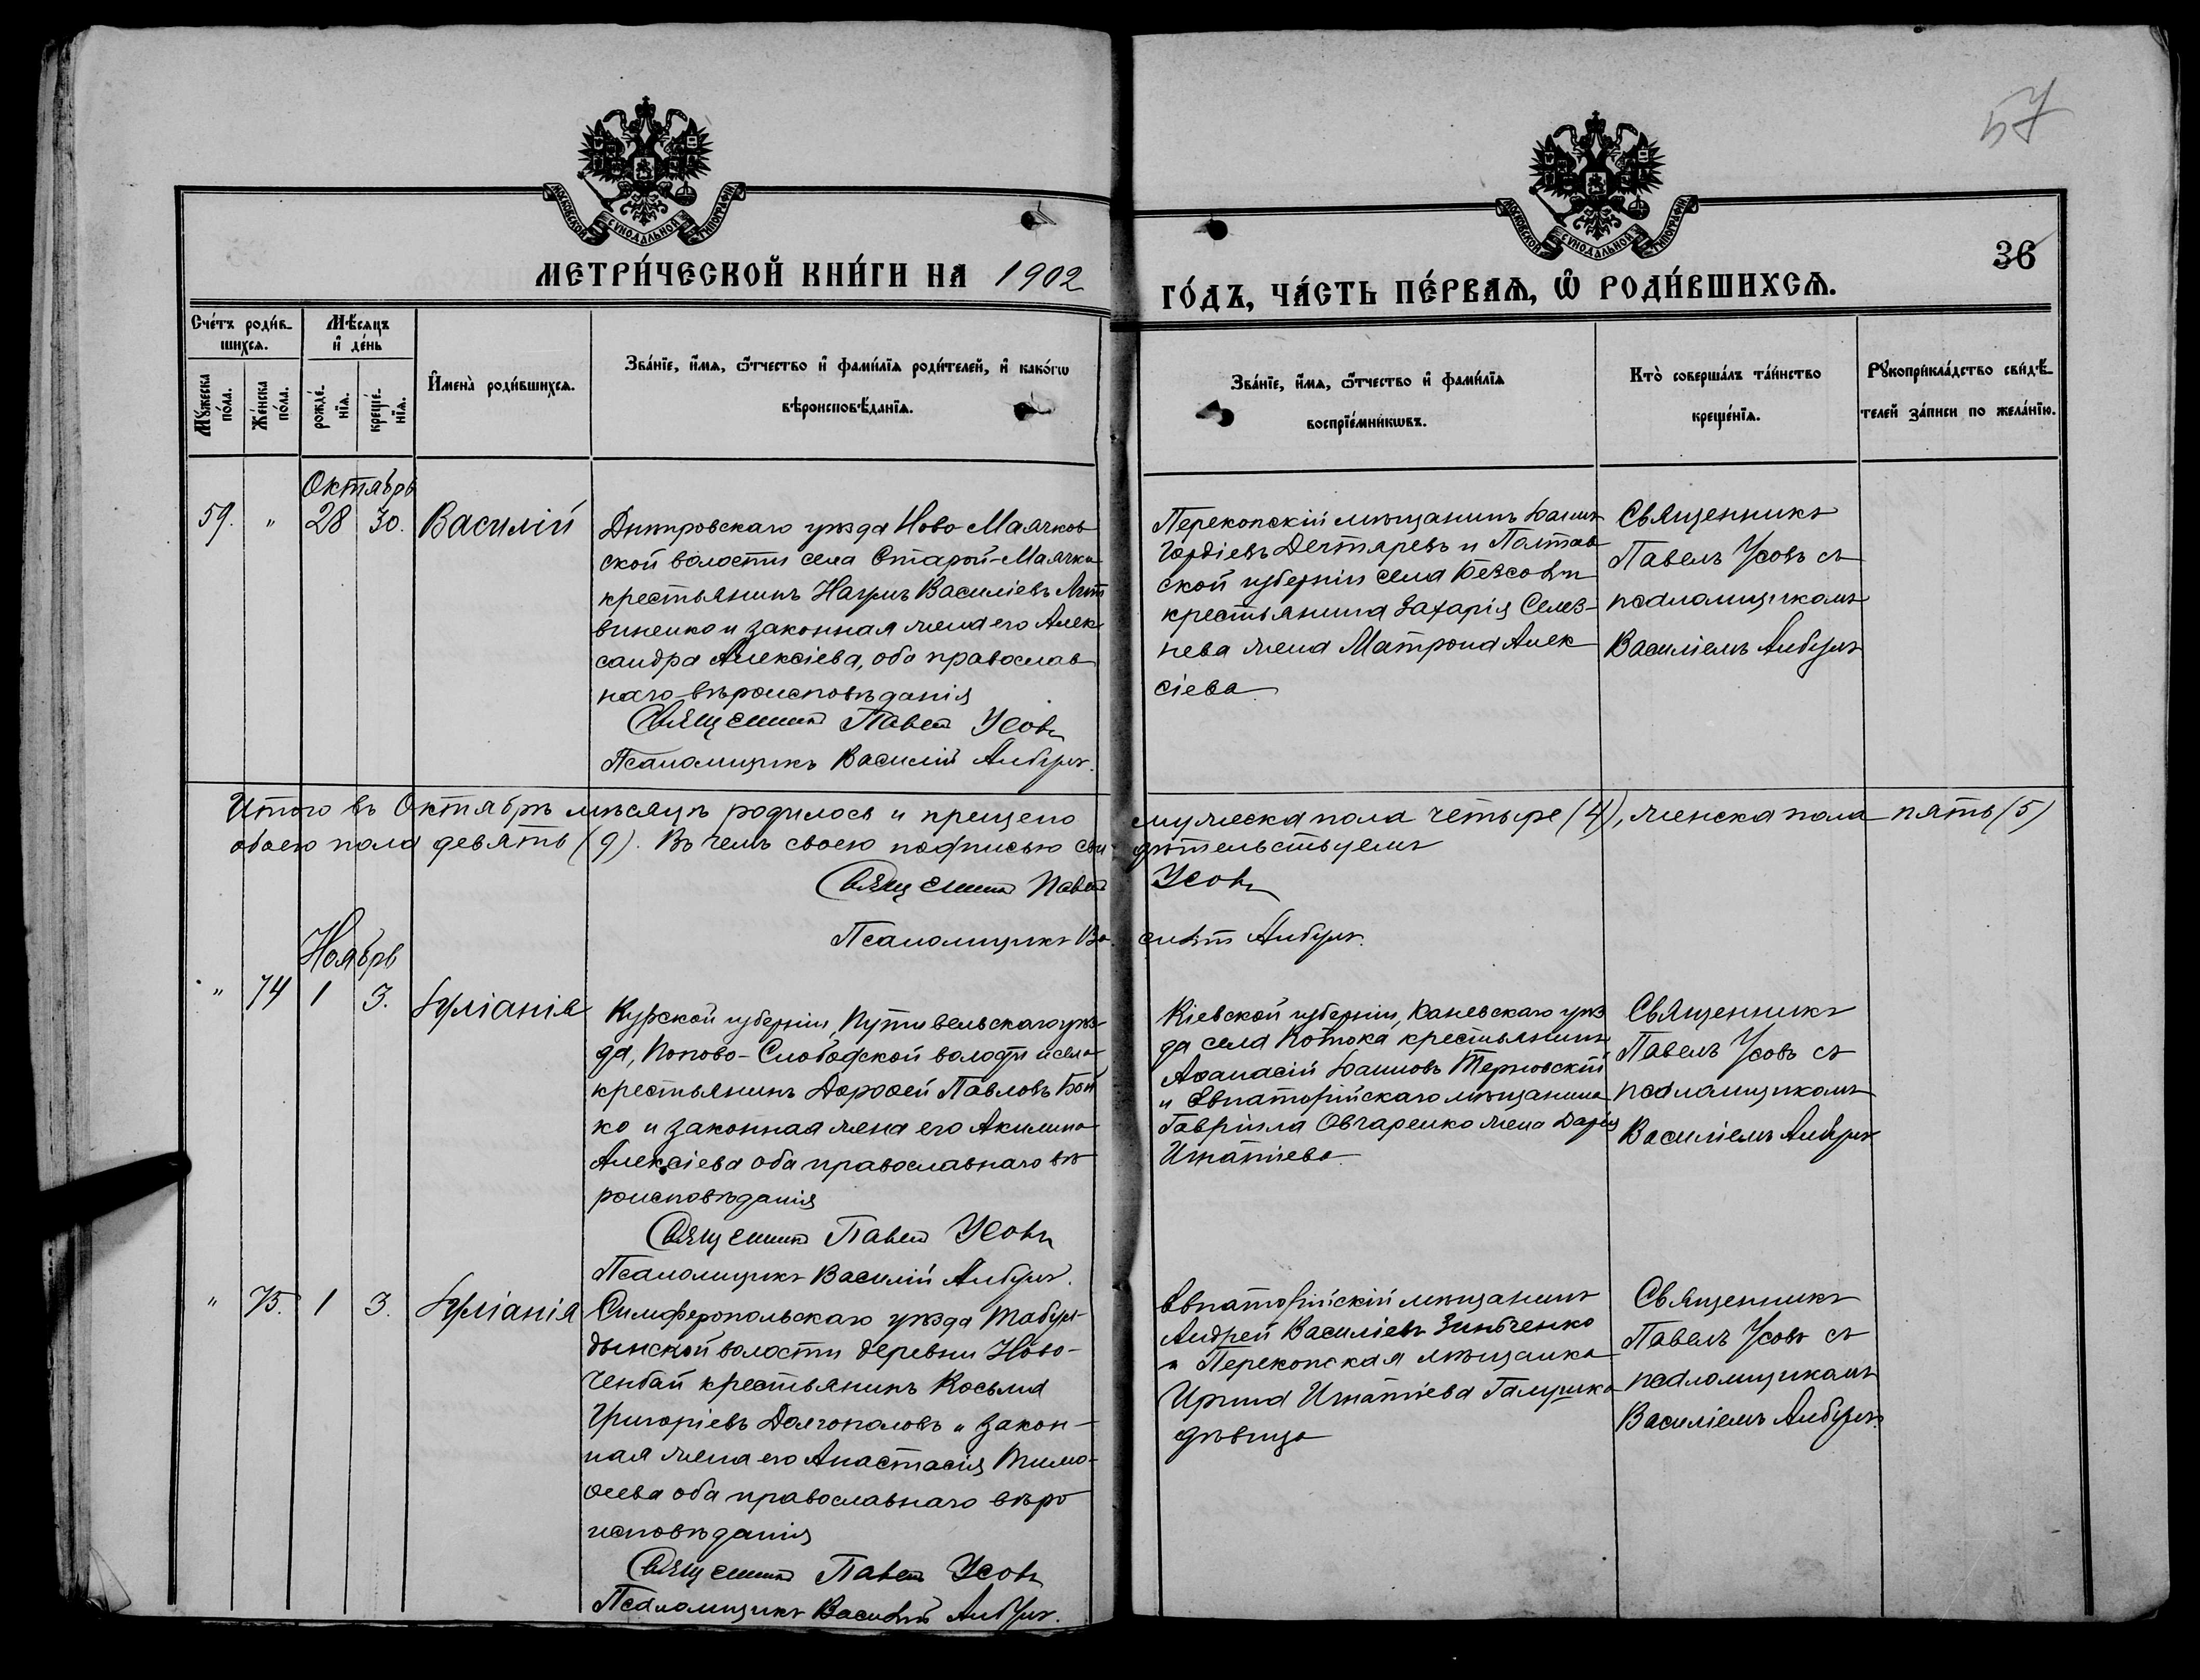 57
МОСКОВСКОЙ СѴНОДАЛЬНОЙ ТИПОГРАФІИ
МОСКОВСКОЙ СѴНОДАЛЬНОЙ ТИПОГРАФІИ
36
МЕТРИ́ЧЕСКОЙ КНИ́ГИ НА 1902
ГО́ДЪ, ЧА́СТЬ ПЕ́РВАѦ, Ѡ҆ РОДИ́ВШИХСѦ.
Сче́тъ роди́в-
шихсѧ.
Мѣ́сѧцъ
и҆ де́нь
Мꙋ́жеска
по́ла.
Же́нска
по́ла.
рожде́-
нїѧ.
креще́-
нїѧ.
И҆мена̀ роди́вшихсѧ.
Зва́нїе, и҆́мѧ, ѻ҆́тчество и҆ фами́лїѧ роди́телей, и҆ како́гѡ
вѣроисповѣ́данїѧ.
Зва́нїе, и҆́мѧ, ѻ҆́тчество и҆ фами́лїѧ
воспрїе́мникѡвъ.
Кто̀ соверша́лъ та́инство
креще́нїѧ.
Рꙋкоприкла́дство свидѣ́-
телей за́писи по жела́нїю.
Октябрь
59. " 28 30. Василій
Днѣпровскаго уѣзда Ново-Маячков
ской волости села Старой-Маячки
крестьянинъ Наумъ Василіевъ Лит
виненко и законная жена его Алек
сандра Алексіева, оба православ
наго вѣроисповѣданія
Священникъ Павелъ Усовъ
Псаломщикъ Василій Анбуръ.
Перекопскій мѣщанинъ
Гордіевъ Дегтяревъ и Полтав
ской губерніи села
крестьянина Захарія Селез-
нева жена Матрона Алек
сіева
Священникъ
Павелъ Усовъ съ
псаломщикомъ
Василіемъ Анбуръ
Итого въ Октябрѣ мѣсяцѣ родилось и крещено мужеска пола четыре (4), женска пола пять (5)
обоего пола девять (9). Въ чемъ своею подписью свидѣтельствуемъ
Священникъ Павелъ Усовъ
Псаломщикъ Василій Анбуръ.
Ноябрь
" 74 1 3. Іуліанія
Курской губерніи, Путивельскаго уѣз-
да, Попово-Слободской волости и села
крестьянинъ Дорофей Павловъ Бой
ко и законная жена его Акилина
Алексіева оба православнаго вѣ
роисповѣданія
Священникъ Павелъ Усовъ
Псаломщикъ Василій Анбуръ.
Кіевской губерніи, Каневскаго уѣз
да села Потока крестьянинъ
Аѳанасій Терновскій
и Евпаторійскаго мѣщанина
Гавріила Овчаренко жена Дарія
Игнатіева
Священникъ
Павелъ Усовъ съ
псаломщикомъ
Василіемъ Анбуръ
" 75. 1 3. Іуліанія
Симферопольскаго уѣзда Табул-
дынской волости деревни Ново-
Ченбай крестьянинъ Косьма
Григоріевъ Долгополовъ и закон-
ная жена его Анастасія Тимо-
ѳеева оба православнаго вѣро
исповѣданія
Священникъ Павелъ Усовъ
Псаломщикъ Василій Анбуръ.
Евпаторійскій мѣщанинъ
Андрей Василіевъ Зинченко
и Перекопская мѣщанка
Ирина Игнатіева Галушко
дѣвица
Священникъ
Павелъ Усовъ съ
псаломщикомъ
Василіемъ Анбуръ.